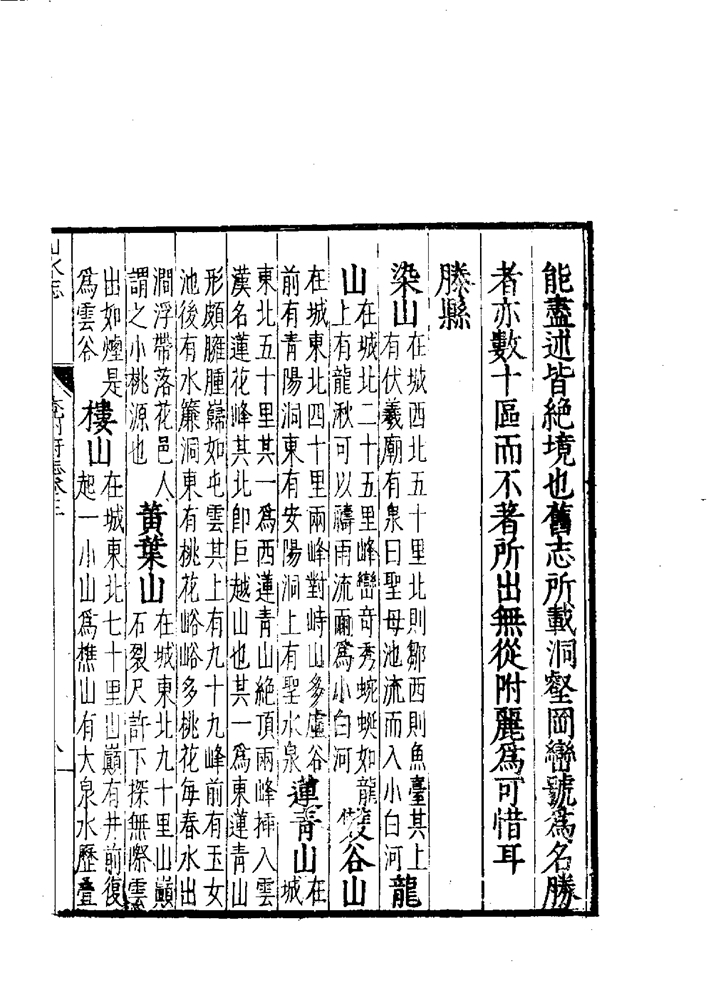 能盡述皆絶境也舊志所載洞壑岡巒號爲名勝
者亦數十區而不著所出無從附麗爲可惜耳
滕縣
染山在城西北五十里北則鄒西則魚臺其上
有伏羲廟有泉曰聖母池流而入小白河龍
山在城北二十五里峰巒奇秀蜿蜒如龍
上有龍湫可以禱雨流爲小白河雙谷山
在城東北四十里兩峰對峙山多虛谷
前有青陽洞東有安陽洞上有聖水泉蓮青山在城
東北五十里其一爲西蓮青山絶頂兩峰揷入雲
漢名蓮花峰其北卽巨越山也其一爲東蓮青山
形頗臃腫巋如屯雲其上有九十九峰前有玉女
池後有水簾洞東有桃花峪峪多桃花每春水出
澗浮帶落花邑人
謂之小桃源也黃葉山在城東北九十里山巔
石裂尺許下探無際雲
出如煙是
爲雲谷樓山在城東北七十里山巔有井前復
起一小山爲樵山有大泉水歷疊
山水志
兖州府志卷三
八